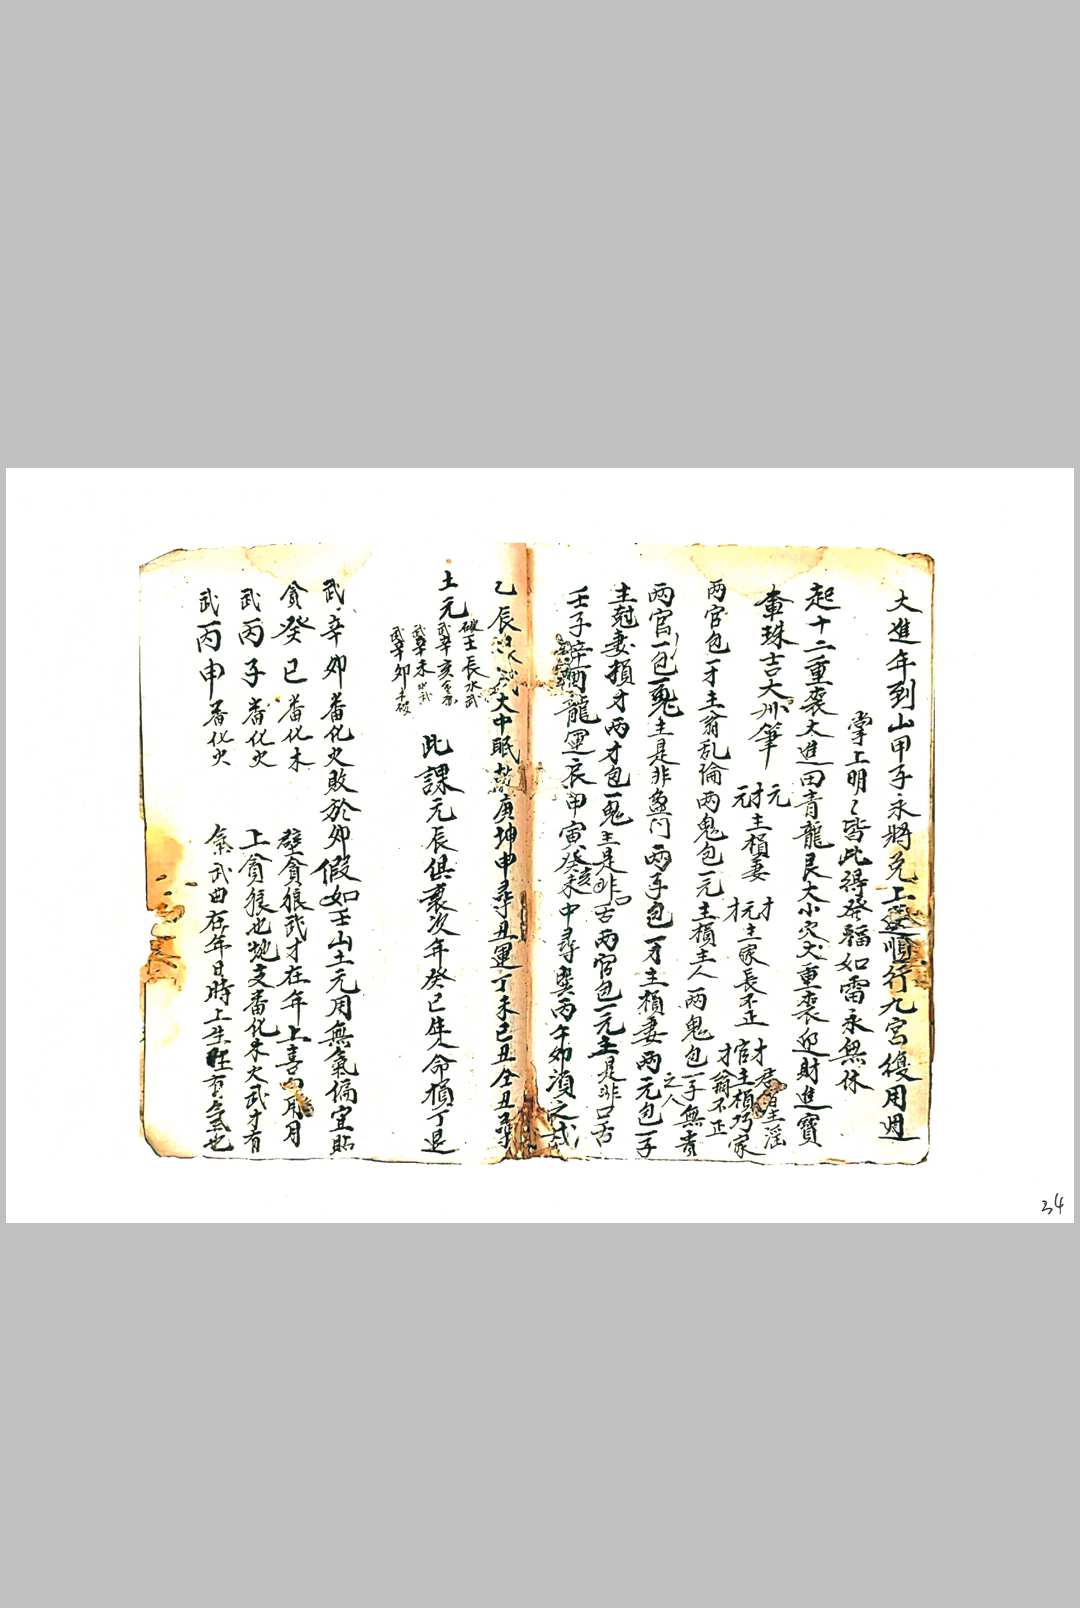 大進年到山甲子永將兌上逆順行九宮復用週
掌上明々皆此得發福如雷永無休
起十二重袭大進田青龍艮大小穴丈重袭迎財進寶
車珠吉大州筆
元才元主損妻
才元才主家長不正
才官才君主淫
主損巧家
两官包一才主翁乱倫两鬼包一元主損主人两鬼包一子無青之人
才翁不正
两官一包一鬼主是非盈门两子包一才主損妻两元包一子
主尅妻損才两才包一鬼主是非口舌两官包一元主是非口舌
壬子辞酉龍運辰甲寅癸亥未中尋巽丙午卯湏之式
乙辰大中眠乾庚坤申尋丑運丁未已丑仝丑尋
土元
破壬長水武
武辛亥
武辛未水武
武辛卯土破
此課元辰俱衰次年癸已生人命損丁退
武辛卯畨化火敗於卯假如壬山土元用無氣偏宜貼
貪癸巳畨化木
壁貪狼武才在年上喜用月
武丙子畨化火
上貪狼也地支畨化木火武才有
武丙申畨化火
氣武曲在年日時上生旺有氣也
34